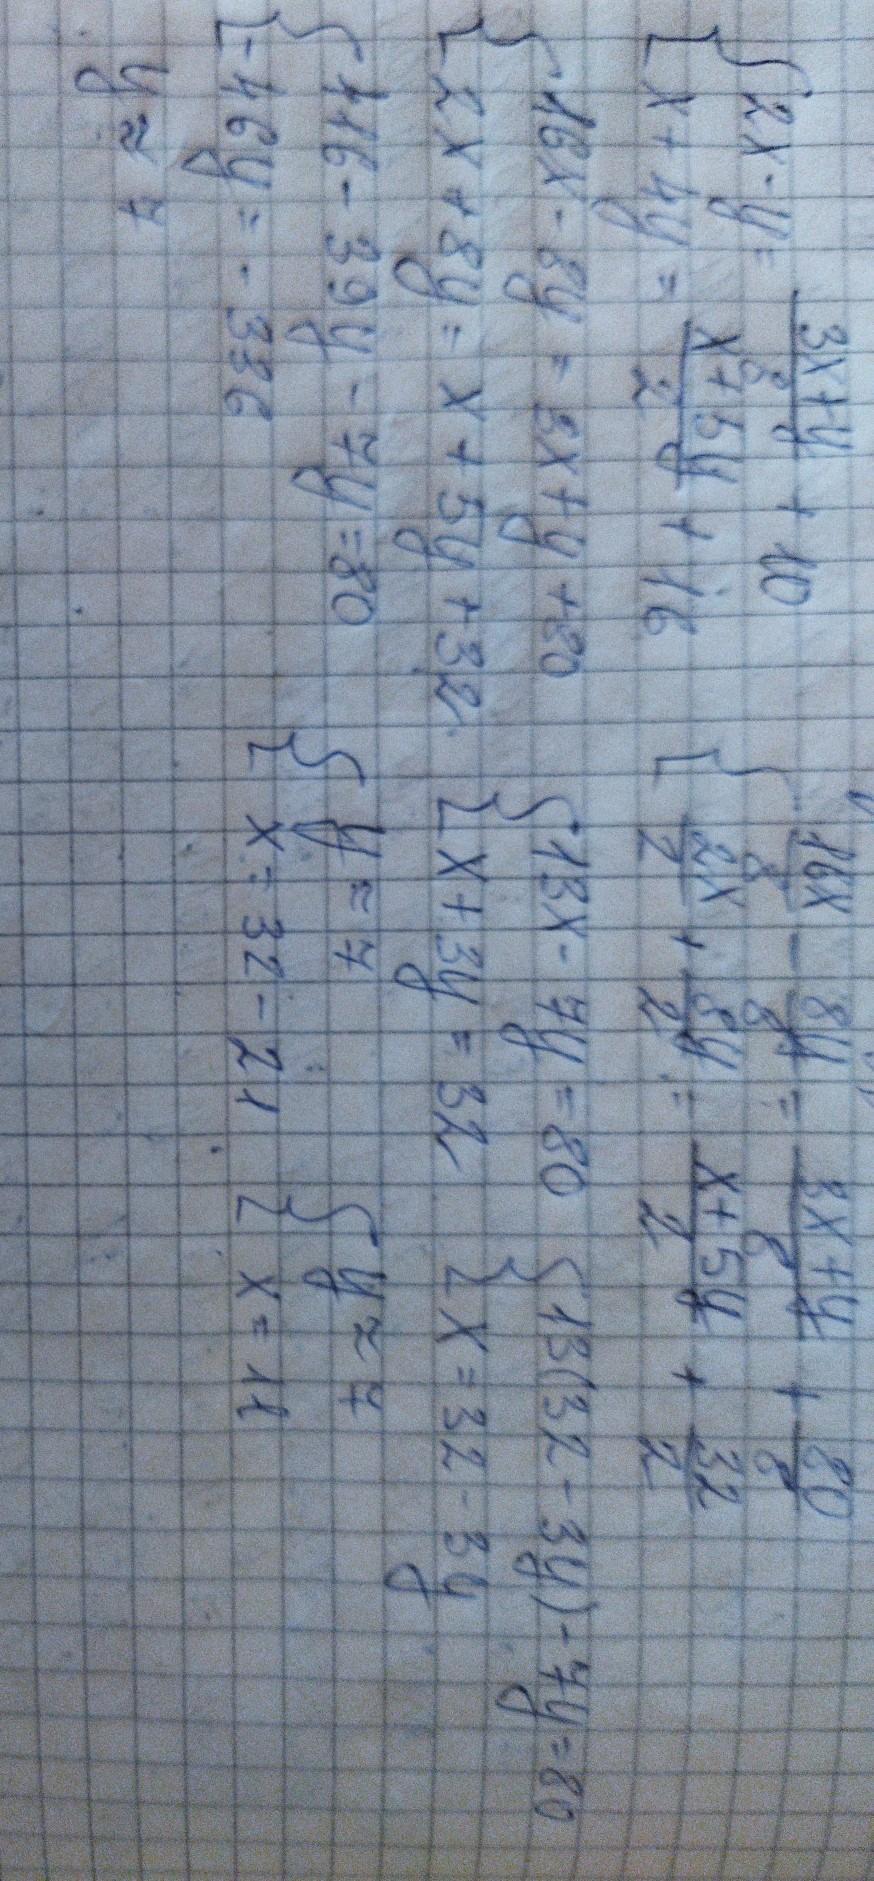 { 2x-y = (3x+y)/8 + 10
{ x+4y = (x+5y)/2 + 16
{ 16x/8 - 8y/8 = (3x+y)/8 + 80/8
{ 2x/2 + 8y/2 = (x+5y)/2 + 32/2
{ 16x - 8y = 3x+y +80
{ 2x + 8y = x + 5y + 32
{ 13x - 7y = 80
{ x + 3y = 32
{ 13(32 - 3y) - 7y = 80
{ x = 32 - 3y
{ 416 - 39y - 7y = 80
{ -46y = - 336
{ y ≈ 7
{ x = 32 - 21
{ y ≈ 7
{ x = 11
y ≈ 7